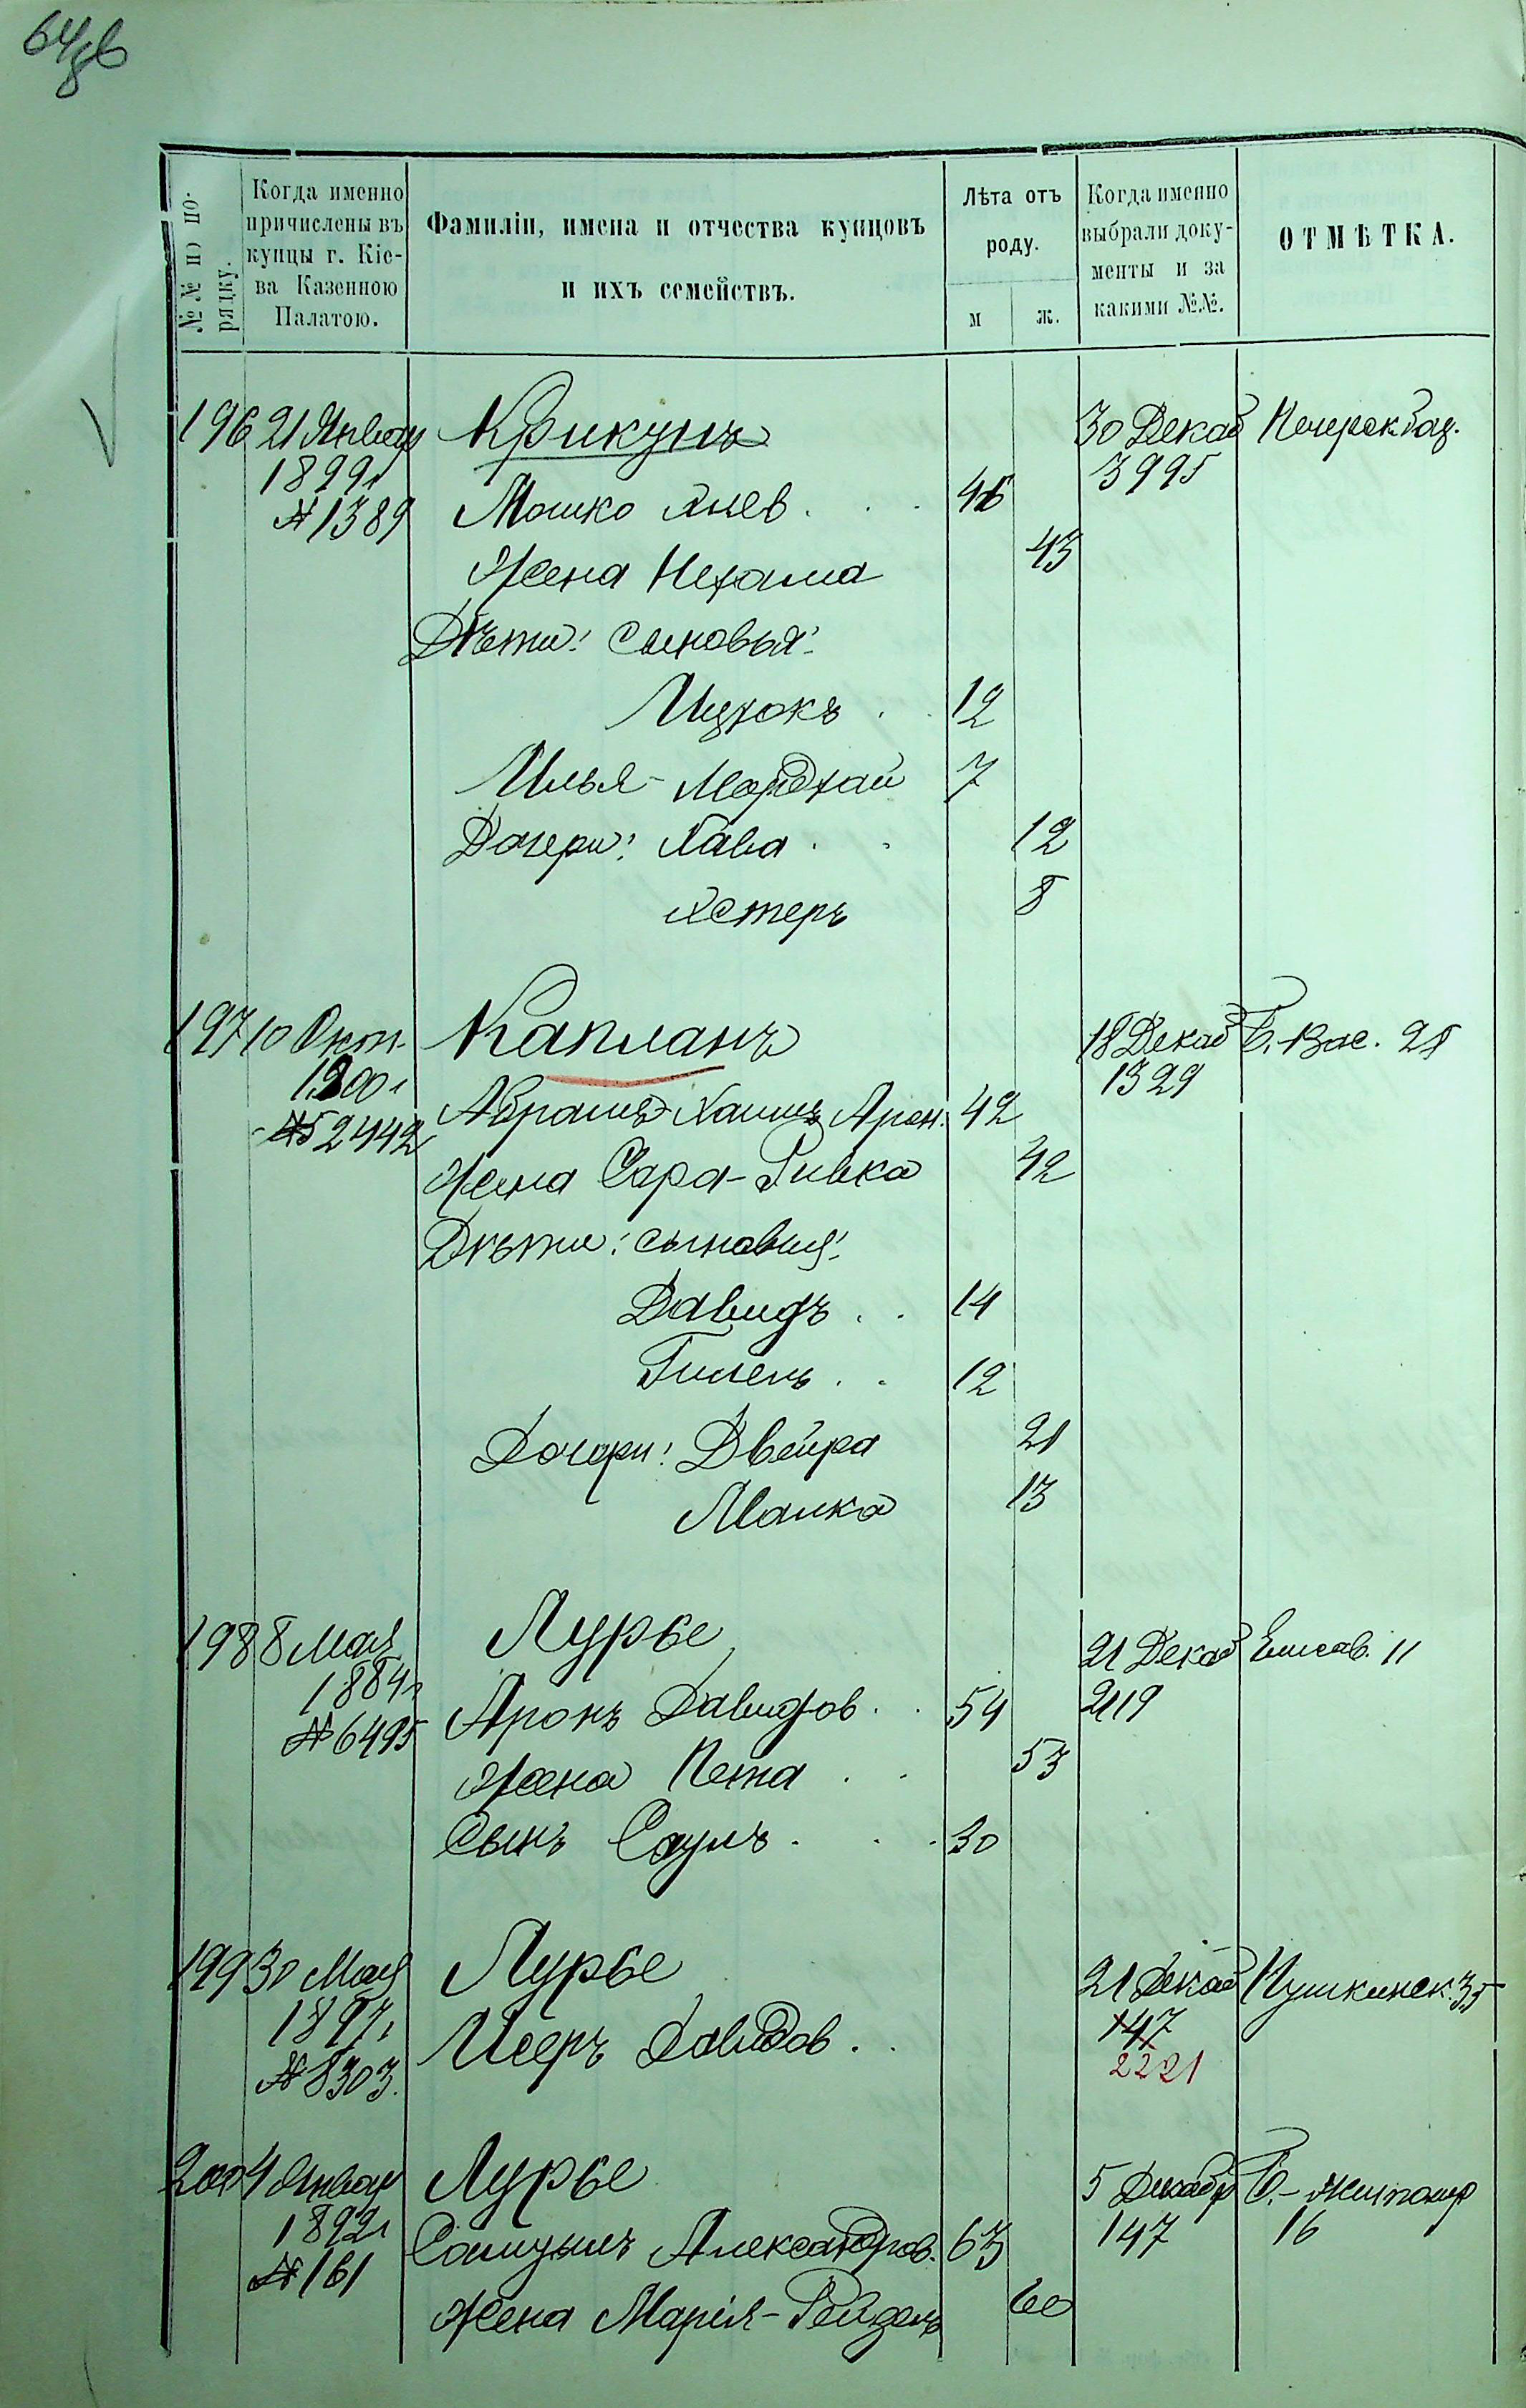 64 об
№№ по порядку.
Когда именно причислены въ купцы г. Кіева Казенною Палатою.
Фамиліи, имена и отчества купцовъ
и ихъ семействъ.
Лѣта отъ роду.
м
ж.
Когда именно выбрали документы и за какими №№.
ОТМѢТКА.
196 21 Январ Крикунъ 30 Декаб
1899 г 3995
№ 1389 Мошко 46
Жена Нехама 43
Дѣти: сыновья:
Ицхокъ 12
Илья-Мордхай 7
Дочери: Хава 12
Эстеръ 8
197 10 Окт. Капланъ 18 Декаб Б. Вас. 28
1900 г 1329
№ 52442 Абрамъ-Хаимъ Арон. 42
Жена Сара-Ривка 42
Дѣти: сыновья:
Давидъ 14
Гилель 12
Дочери: Двейра 21
Малка 13
198 8 Мая Лурье 21 Декаб Елисав. 11
1884 г 2119
№ 6495 Аронъ Давидов 54
Жена 53
Сынъ Саулъ 30
199 30 Мая Лурье 21 Декаб Пушкинск. 35
1897 г 147
№ 8303. Исеръ Давидов 2221
200 4 Январ Лурье 5 Декабр Б.-Житомир
1892 г 147 16
№ 161 Самуилъ Александров. 63
Жена Марія-Рейзель 60